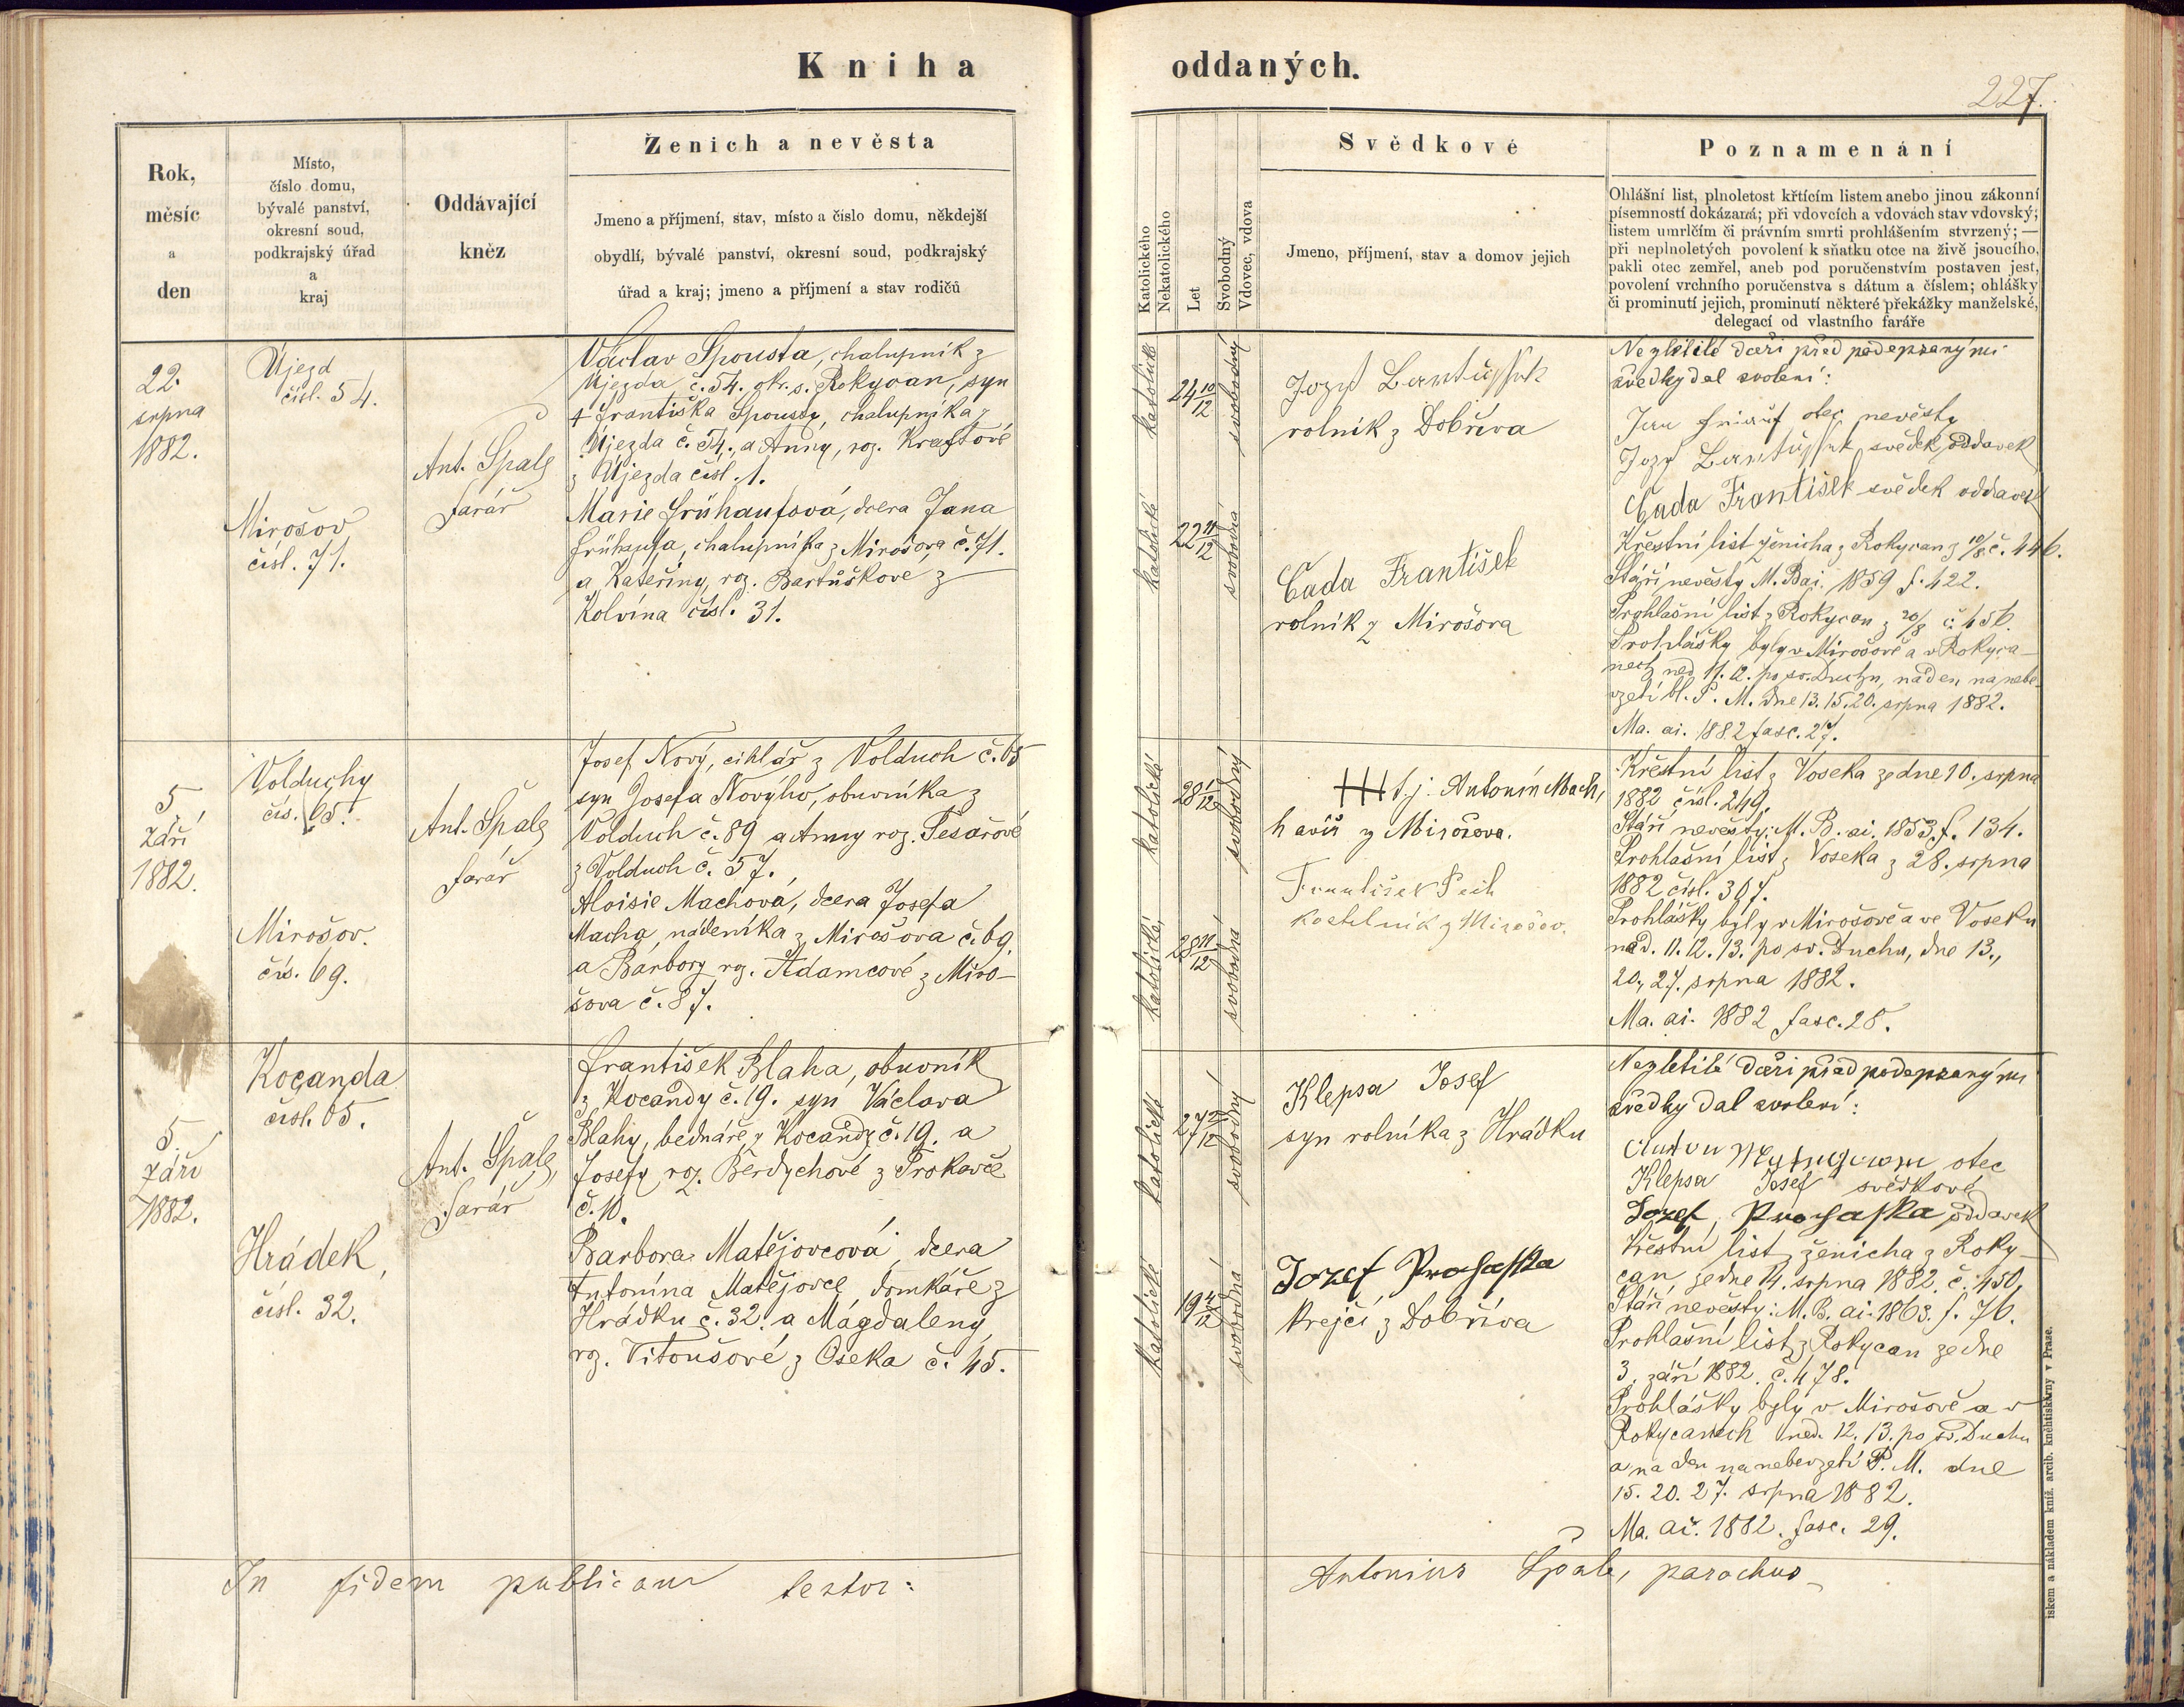 Kniha oddaných.
227.
Rok,
měsíc
a
den
Místo,
číslo domu,
bývalé panství,
okresní soud,
podkrajský úřad
a
kraj
Oddávající
kněz
Ženich a nevěsta
Jmeno a příjmení, stav, místo a číslo domu, někdejší
obydlí, bývalé panství, okresní soud, podkrajský
úřad a kraj; jmeno a příjmení a stav rodičů
Katolického
Nekatolického
Let
Svobodný
Vdovec, vdova
Svědkové
Jmeno, příjmení, stav a domov jejich
Poznamenání
Ohlášní list, plnoletost křtícím listem anebo jinou zákonní
písemností dokázaná; při vdovcích a vdovách stav vdovský;
listem umrlčím či právním smrti prohlášením stvrzený; —
při neplnoletých povolení k sňatku otce na živě jsoucího,
pakli otec zemřel, aneb pod poručenstvím postaven jest,
povolení vrchního poručenstva s dátum a číslem; ohlášky
či prominutí jejich, prominutí některé překážky manželské,
delegací od vlastního faráře
22.
srpna
1882.
Újezd
čísl. 54.
Mirošov
čísl. 71.
Ant. Špale
farář
Václav Spousta, chalupník z
Újezda č. 54. okr. s. Rokycan, syn
† Františka Spousty, chalupníka z
Újezda č. 54., a Anny, roz. Kraftové
z Újezda čísl. 1.
Marie Frühaufová, dcera Jana
Frühaufa, chalupníka z Mirošova č. 71.
a Kateřiny, roz. Bartůškové z
Kolvína čísl. 31.
katolické
24 10/12
svobodný
katolické
22 11/12
svobodná
Jozef Bartůssek
rolník z Dobříva
Čada František
rolník z Mirošova
Nezletilé dceři před podepsanými
svědky dal svolení:
Jan otec nevěsty
Jozef Bartůssek svědek oddavek
Čada František svědek oddavek
Křestní list ženicha z Rokycan z 10/8 č. 446.
Stáří nevěsty M. Bai. 1859 f. 422.
Prohlašní list z Rokycan z 20/8 č. 456.
Prohlášky byly v Mirošově a v Rokyca-
nech ned. 11. 12. po sv. Duchu, na den nanebe-
vzetí bl. P. M. dne 13. 15. 20. srpna 1882.
Ma. ai. 1882 fasc. 27.
5.
září
1882.
Volduchy
čís. 65.
Mirošov.
čís. 69.
Ant. Špale
farář
Josef Nový, cihlář z Volduch č. 65
syn Josefa Novýho, obuvníka z
Volduch č. 89 a Anny roz. Tesařové
z Volduch č. 57.
Aloisie Machová, dcera Josefa
Macha, nádeníka z Mirošova č. 69.
a Barbory roz. Adamcové z Miro-
šova č. 87.
katolické
28 1/12
svobodný
katolické
28 11/12
svobodná
+++ t. j. Antonín Mach,
havíř z Mirošova.
František Peih
kostelník z Mirošov.
Křestní list z Voseka ze dne 10. srpna
1882 čísl. 249.
Stáří nevěsty: M. B. ai. 1853, f. 134.
Prohlašní list z Voseka z 28. srpna
1882 čísl. 307.
Prohlášky byly v Mirošově a ve Voseku
ned. 11. 12. 13. po sv. Duchu, dne 13.,
20., 27. srpna 1882.
Ma. ai. 1882 fasc. 28.
5.
září
1882.
Kocanda
čísl. 65.
Hrádek,
čísl. 32.
Ant. Špale,
farář
František Blaha, obuvník
z Kocandy č. 19. syn Václava
Blahy, bednáře z Kocandy č. 19. a
Josefy roz. Berdychové z Trokavce
č. 10.
Barbora Matějovcová, dcera
Antonína Matějovce, domkáře z
Hrádku č. 32. a Magdaleny,
roz. Vitoušové z Oseka č. 45.
katolické
27 2/12
svobodný
katolické
19 4/12
svobodná
Klepsa Josef
syn rolníka z Hrádku
Jozef Prohasska
krejčí z Dobříva
Nezletilé dceři před podepsanými
svědky dal svolení:
Anton otec
Klepsa Josef svědkové
Jozef Prohasska oddavek
Křestní list ženicha z Roky-
can, ze dne 14. srpna 1882. č. 450,
Stáří nevěsty: M. B. ai. 1863. f. 76.
Prohlašní list z Rokycan ze dne
3. září 1882. č. 478.
Prohlášky byly v Mirošově a v
Rokycanech ned. 12. 13. po sv. Duchu
a na den nanebevzetí P. M. dne
15. 20. 27. srpna 1882.
Ma. ai. 1882. fasc. 29.
In fidem publicam testor:
Antonius Špale, parochus
iskem a nákladem kníž. arcib. kněhtiskárny v Praze.